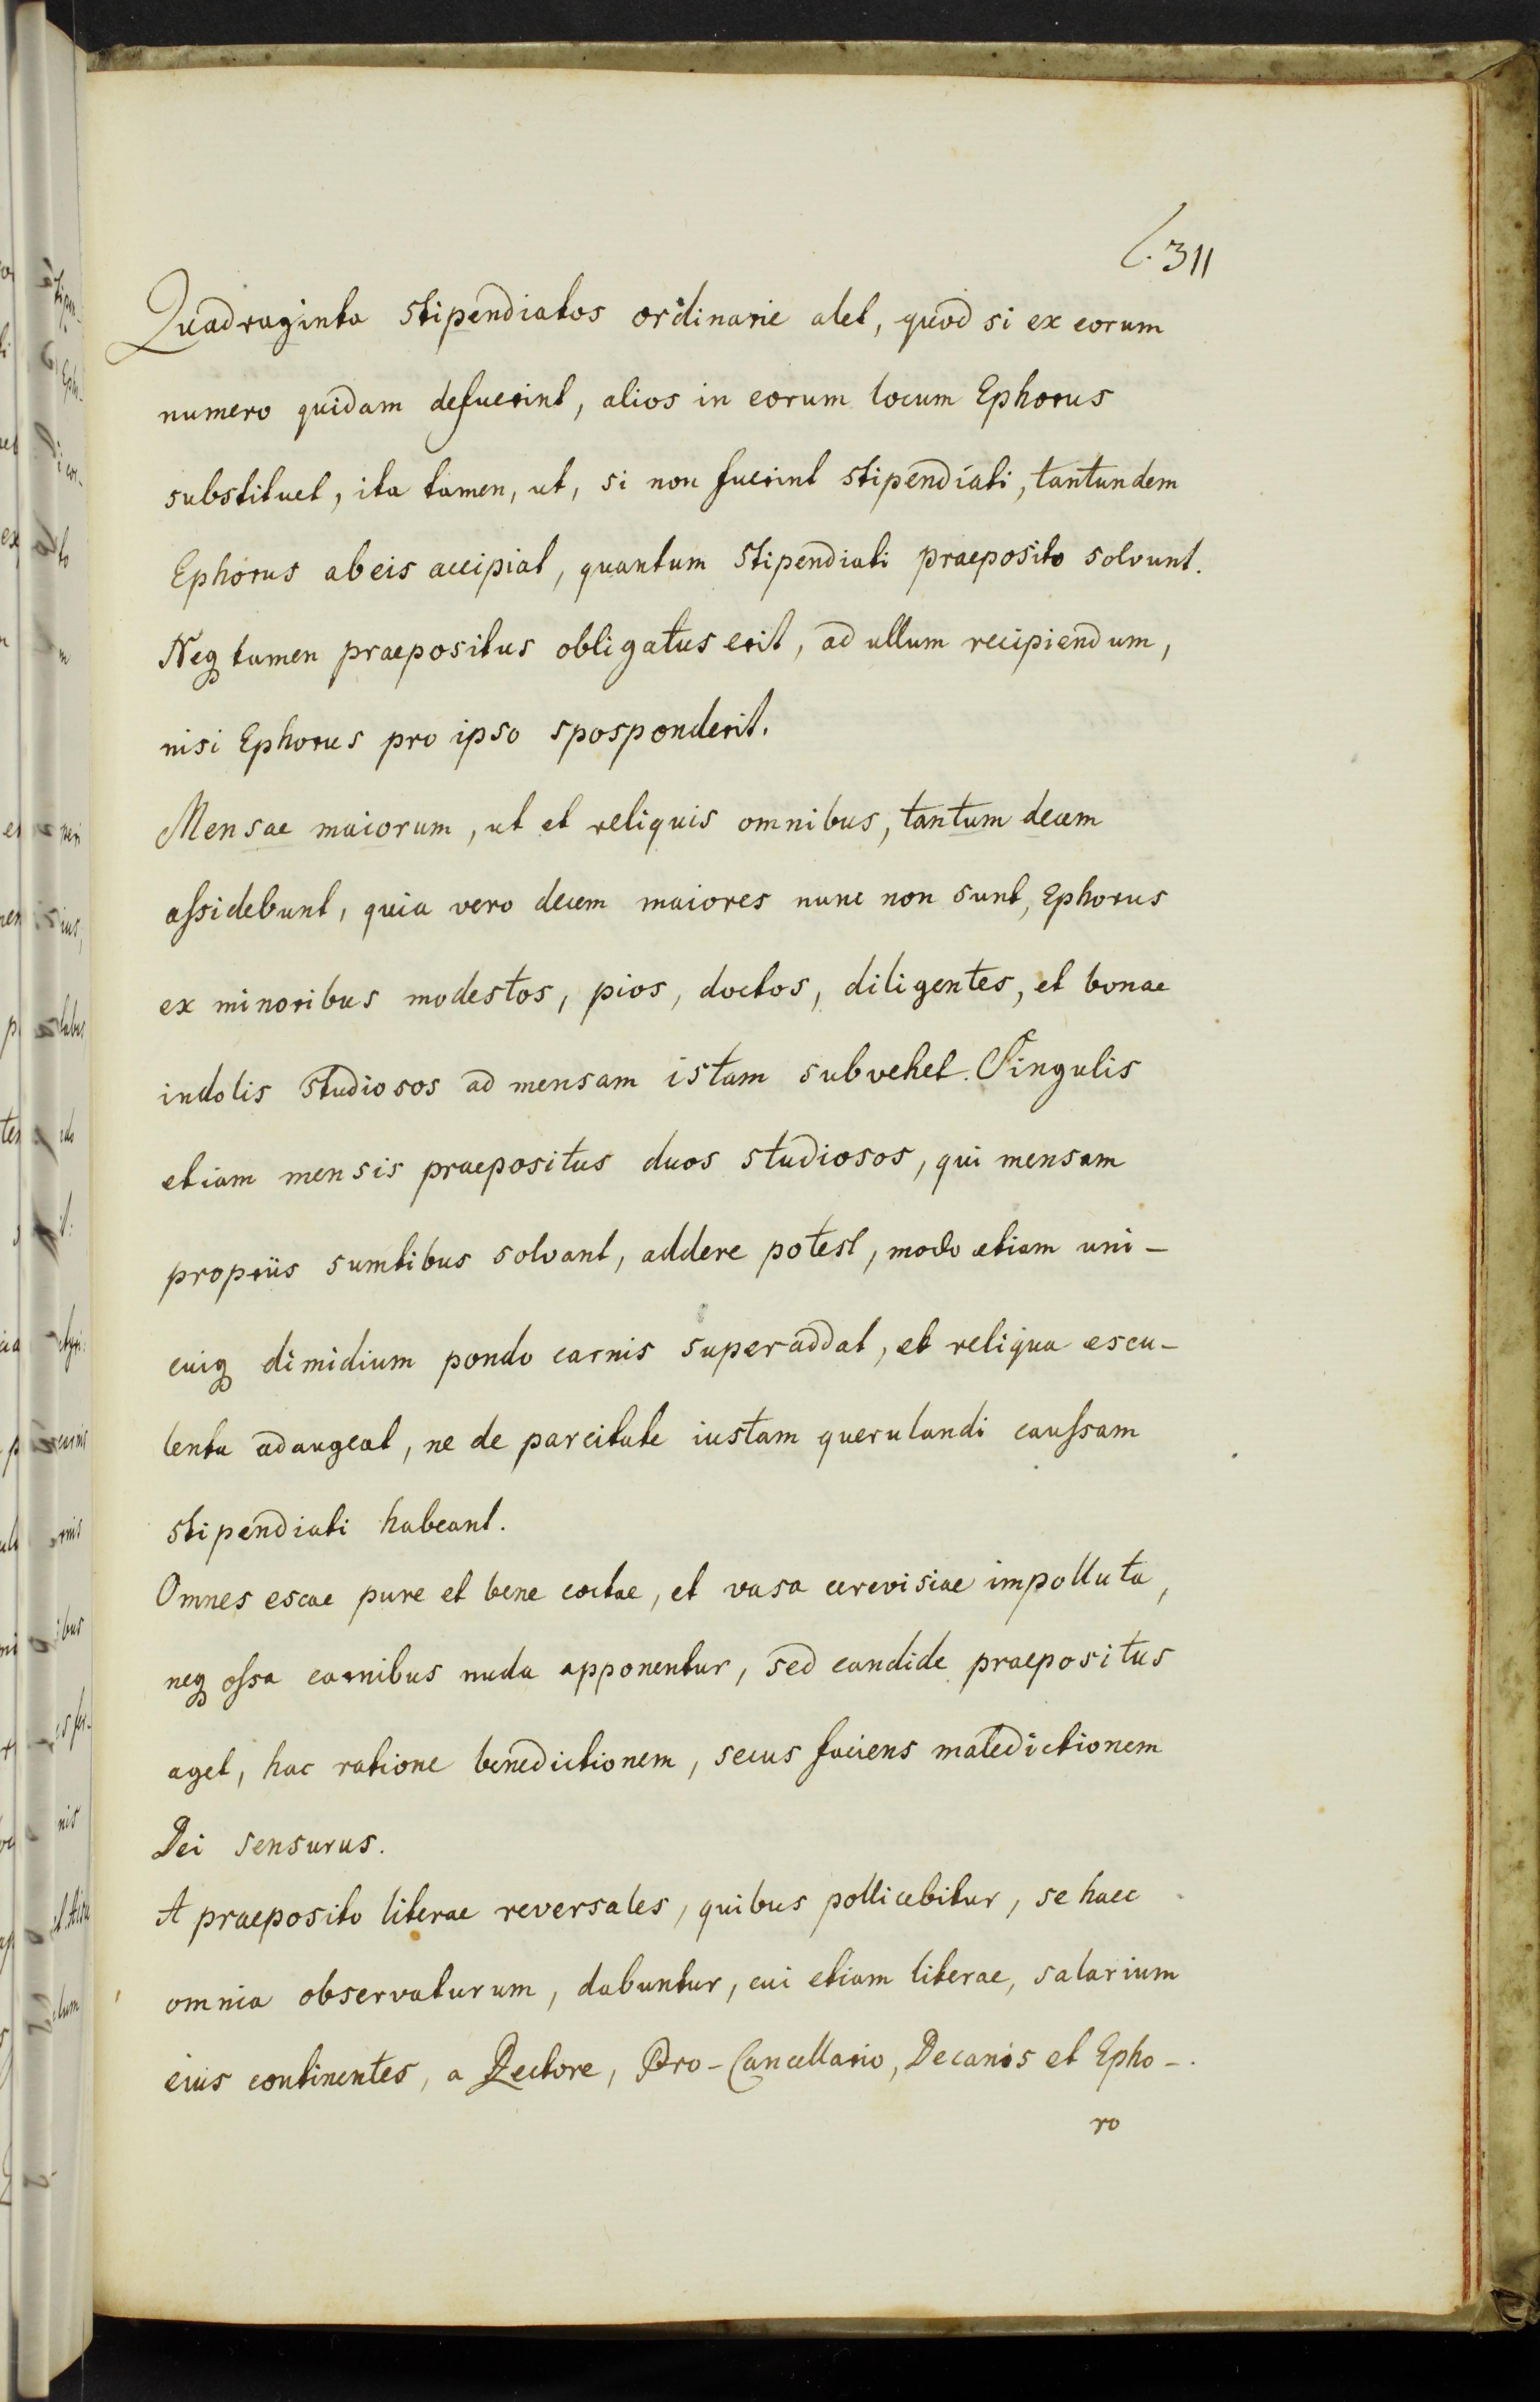 C. 311
Quadraginta stipendiatos ordinarie alet, quod si ex eorum
numero quidam defuerint, alios in eorum locum Ephorus
substituet, ita tamen, ut, si non fuerint stipendiati, tantundem
Ephorus ab eis accipiat, quantum stipendiati praeposito solvunt.
Neq tamen praepositus obligatus erit, ad ullum recipiendum,
nisi Ephorus pro ipso sposponderit.
Mensae maiorum, ut et reliquis omnibus, tantum decem
aſsidebunt, quia vero decem maiores nunc non sunt, Ephorus
ex minoribus modestos, pios, doctos, diligentes, et bonae
indolis studiosos ad mensam istam subvehet. Singulis
etiam mensis praepositus duos studiosos, qui mensam
propriis sumtibus solvant, addere potest, modo etiam uni-
cuiq dimidium pondo carnis superaddat, et reliqua escu-
lenta adaugeat, ne de parcitate iustam querulandi cauſsam
stipendiati habeant.
Omnes escae pure et bene coctae, et vasa cerevisiae impolluta,
neq oſsa carnibus nuda apponentur, sed candide praepositus
aget, hac ratione benedictionem, secus faciens maledictionem
Dei sensurus.
A praeposito literae reversales, quibus pollicebitur, se haec
omnia observaturum, dabuntur, cui etiam literae, salarium
eius continentes, a Rectore, Pro-Cancellario, Decanis et Epho-
ro